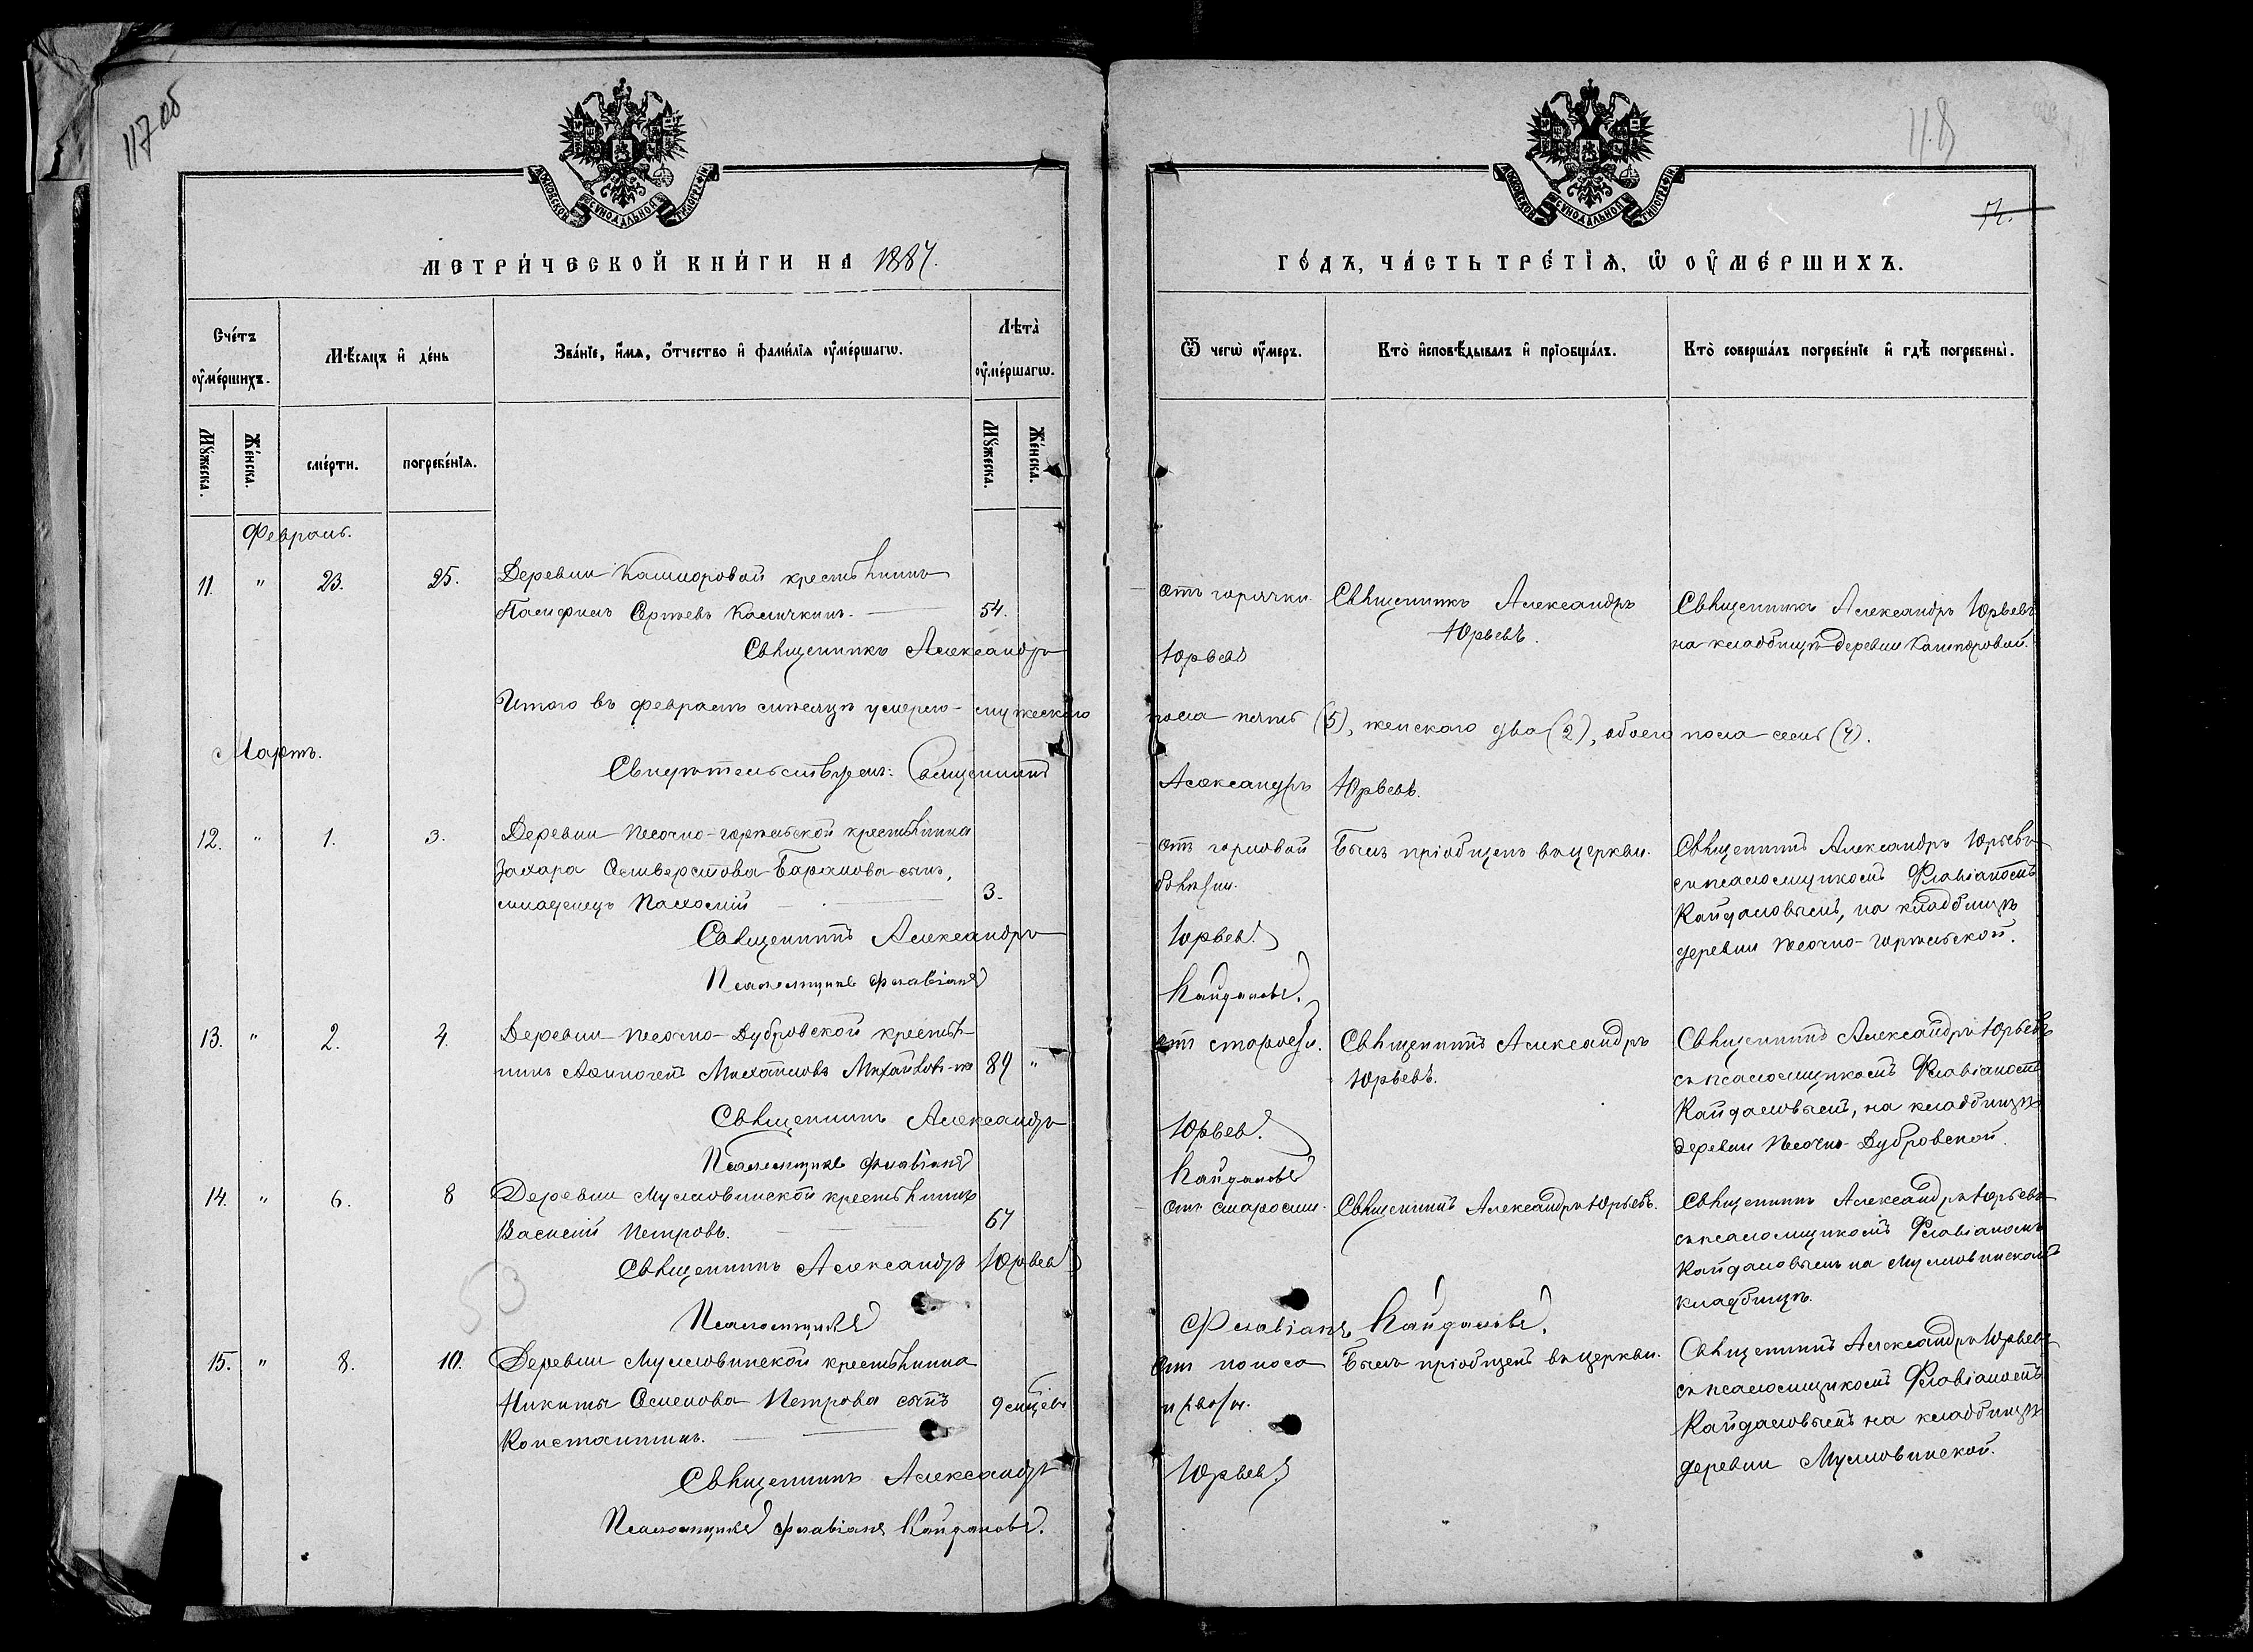 117 об
МОСКОВСКОЙ СѴНОДАЛЬНОЙ ТИПОГРАФІИ
МЕТРИ́ЧЕСКОЙ КНИ́ГИ НА 1887.
Сче́тъ оу҆ме́ршихъ.
Мѣ́сяцъ и҆ де́нь
Зва́нїе, и҆́мя, ѻ҆́тчество и҆ фами́лїя оу҆ме́ршагѡ.
Лѣта̀ оу҆ме́ршагѡ.
Мꙋ́жеска.
Же́нска.
сме́рти.
погребе́нїѧ.
Мꙋ́жеска.
Же́нска.
Февраль.
11. " 23. 25. Деревни Кашпоровой крестьянинъ
Памфилъ Сергѣевъ Каличкинъ. 54.
Священникъ Александръ
Итого въ февралѣ мѣсяцѣ умерло мужескаго
Мартъ.
Свидѣтельствуемъ: Священникъ
12. " 1. 3. Деревни Песочно-горѣльской крестьянина
Захара Селиверстова Баранова сынъ,
младенецъ Пахомій 3.
Священникъ Александръ
Псаломщикъ Флавіанъ
13. " 2. 4. Деревни Песочно-Дубровской крестья-
нинъ Михайловъ 89 "
Священникъ Александръ
Псаломщикъ Флавіанъ
14. " 6. 8 Деревни Мулловинской крестьянинъ
Василій Петровъ. 67
Священникъ Александръ Юрьевъ
53
Псаломщикъ
15. " 8. 10. Деревни Мулловинской крестьянина
Никиты Семенова Петрова сынъ 9 мѣсяцевъ
Константинъ.
Священникъ Александръ
Псаломщикъ Флавіанъ Кайдаловъ.
118
МОСКОВСКОЙ СѴНОДАЛЬНОЙ ТИПОГРАФІИ
ГО́ДЪ, ЧА́СТЬ ТРЕ́ТЇѦ, Ѡ҆ ОУ҆МЕ́РШИХЪ.
Ѿ чегѡ̀ оу҆́меръ.
Кто̀ и҆сповѣ́дывалъ и҆ прїѡбща́лъ.
Кто̀ соверша́лъ погребе́нїе и҆ гдѣ̀ погребены̀.
отъ горячки.
Священникъ Александръ
Юрьевъ.
Священникъ Александръ Юрьевъ
на кладбищѣ деревни Кашпоровой.
Юрьевъ
пола пять (5), женскаго два (2), обоего пола семь (7).
Александръ Юрьевъ.
отъ горловой
болѣзни.
Былъ пріобщенъ въ церкви.
Священникъ Александръ Юрьевъ
съ псаломщикомъ Флавіаномъ
Кайдаловымъ, на кладбищѣ
деревни Песочно-горѣльской.
Юрьевъ
Кайдаловъ.
отъ старости.
Священникъ Александръ
Юрьевъ.
Священникъ Александръ Юрьевъ
съ псаломщикомъ Флавіаномъ
Кайдаловымъ, на кладбищѣ
деревни Песочно-Дубровской.
Юрьевъ
Кайдаловъ
отъ старости.
Священникъ Александръ Юрьевъ.
Священникъ Александръ Юрьевъ
съ псаломщикомъ Флавіаномъ
Кайдаловымъ на Мулловинскомъ
кладбищѣ.
Флавіанъ Кайдаловъ.
отъ поноса
и рвоты.
Былъ пріобщенъ въ церкви.
Священникъ Александръ Юрьевъ
съ псаломщикомъ Флавіаномъ
Кайдаловымъ на кладбищѣ
деревни Мулловинской.
Юрьевъ